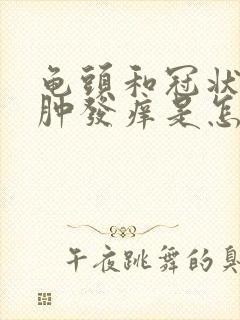 龟頭和冠状
肿發痒是怎
午夜跳舞的臭